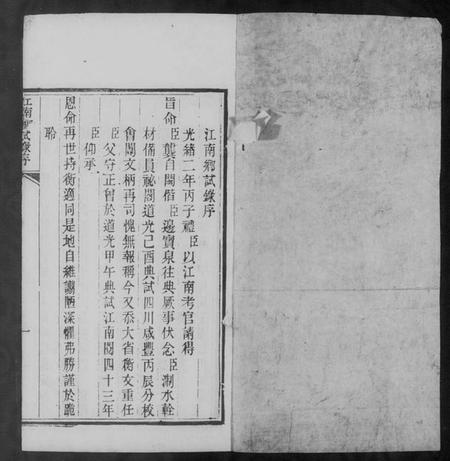 江南鄉試錄序
光緒二年丙子禮臣以江南考官請得
旨命臣龔自閎偕臣邊寶泉往典厥事伏念臣澗水輇
材備員祕閣道光己酉典試四川咸豐丙辰分校
會闈文柄再司愧無報稱今又忝大省衡文重任
臣父守正曾於道光甲午典試江南閱四十三年
臣仰承
恩命再世持衡適同是地自維譾陋深懼弗勝謹於跪
聆
江南鄉試錄序
一